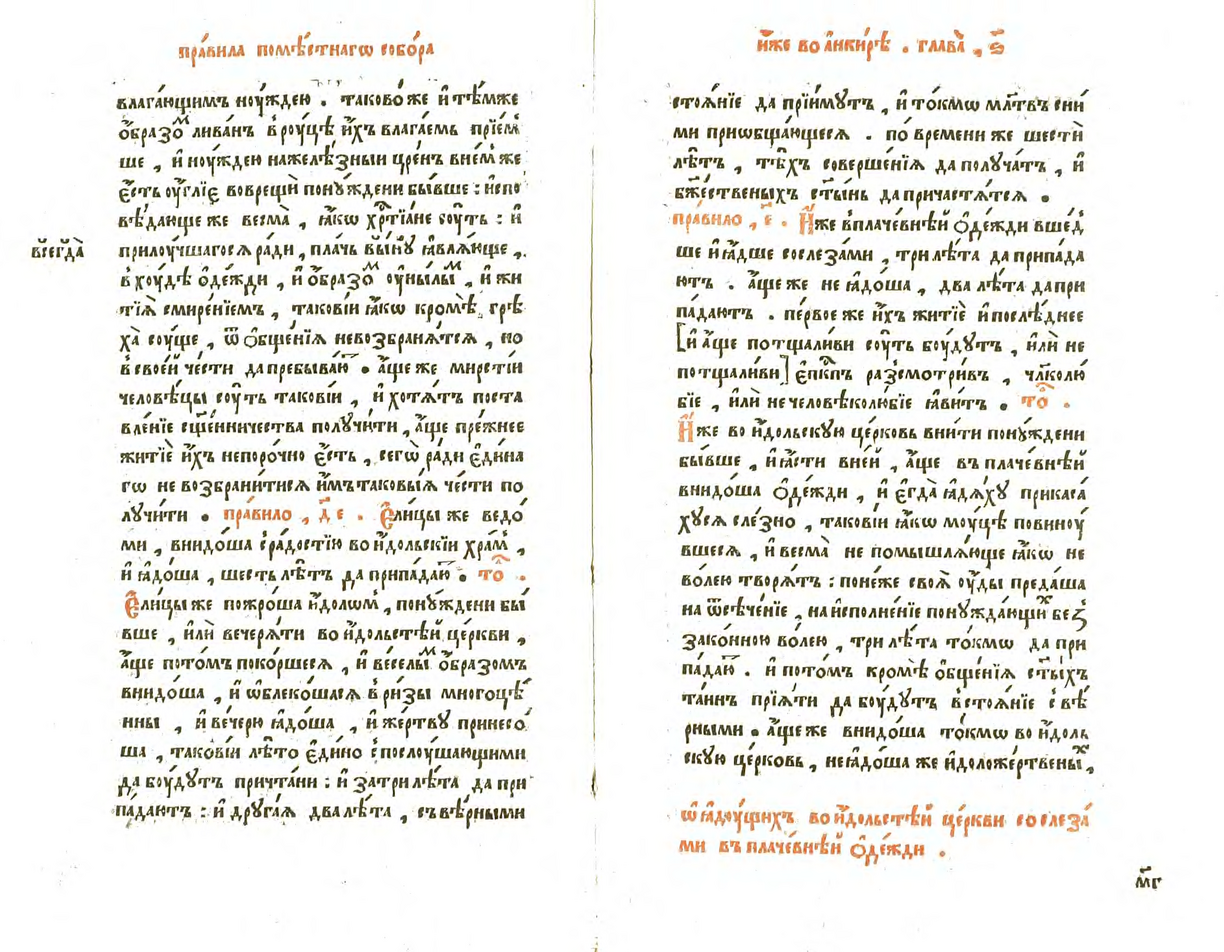 пра́вила помѣ́стнагѡ собо́ра
влага́ющимъ ноу́ждею . таково́же и҆ тѣ́мже
ѻ҆́бразоⷨ лива́нъ в̾роу́цѣ и҆́хъ влага́емь прїе́мⷧ
ше , и҆ ноу́ждею нажелѣ́зныи цре́нъ вне́мже
є҆́сть оу҆́глїє воврещѝ пону́ждени бы́вше : и҆спо
вѣ́дающе же весма̀ , ꙗ҆́кѡ хрⷭ҇тїа́не соу́ть : и҆
прилоу́чшагося ра́ди , пла́чь вы́ну ꙗ҆вля́юще ,
всегда̀
в̾хоу́дѣ ѻ҆де́жди , и҆ ѻ҆́бразоⷨ оу҆ны́лыⷨ , и҆ жи
тїѧ̀ смире́нїемъ , таковı́и ꙗ҆́кѡ кромѣ̀ грѣ
ха̀ соу́ще , ѿ ѻ҆бще́нїѧ невозбранѧ́тсѧ , но
в̾свое́й че́сти дапребыва́юⷮ . а҆́ще же мирстїи
человѣ́цы соу́ть таковı́и , и҆ хотѧ́тъ поста
вле́нїе сщ҃е́нничества получи́ти , а҆́ще пре́жнее
житїѐ и҆́хъ непоро́чно є҆́сть , сегѡ̀ ра́ди є҆ди́на
гѡ не возбрани́тисѧ и҆́мътаковы́ѧ че́сти по
лучи́ти . пра́вило , д҃ е . Є҆ли́цы же ведо́
ми , внидо́ша с̾ра́достїю во и҆́дольскїи хра́мⷨ ,
и҆ ꙗ҆до́ша , ше́сть лѣ́тъ да припа́даюⷮ . то̑ .
Є҆ли́цы же пожро́ша и҆́доломⷨ , пону́ждени бы́
вше , и҆лѝ вечерѧ́ти во и҆́дольстѣй це́ркви ,
а҆́ще пото́мъ поко́ршесѧ , и҆ весе́лыⷨ ѻ҆́бразомъ
внидо́ша , и҆ ѡ҆блеко́шасѧ в̾ри́зы многоцѣ́
нны , и҆ вече́рю ꙗ҆до́ша , и҆ же́ртву принесо́
ша , таковı́и лѣ́то є҆ди́но с̾послоу́шающими
да боу́дутъ причта́ни : и҆ затрилѣ́та да при
па́даютъ : и҆ друга́ѧ двалѣ́та , съвѣ́рными
и҆́же во а҆нки́рѣ . глава̀ , ѕ҃
стоѧ́нїе да прїи́мутъ , и҆ то́кмѡ мл҃твъ сни́
ми приѡбща́ющесѧ . по вре́мени же шестѝ
лѣ́тъ , тѣ́хъ соверше́нїѧ да полу́чатъ , и҆
бж҃е́ственыхъ ст҃ы́нь да причастѧ́тсѧ .
пра́вило , е҃ . И҆́же в̾плаче́внѣй ѻ҆де́жди вше́д
ше и҆ ꙗ҆́дше сослеза́ми , три лѣ́та да припа́да
ютъ . а҆́ще же не ꙗ҆до́ша , два лѣ́та да при
па́даютъ . пе́рвое же и҆́хъ житїѐ и҆ послѣ́днее
[и҆ а҆́ще потщали́ви соу́ть боу́дутъ , и҆лѝ не
потщали́ви] є҆пⷭ҇кпъ разсмотри́въ , чл҃колю́
бїе , и҆лѝ нечеловѣколю́бїе ꙗ҆ви́тъ . то̑ .
И҆́же во и҆́дольскую це́рковь вни́ти пону́ждени
бы́вше , и҆ ꙗ҆́сти вне́й , а҆́ще въ плаче́внѣй
внидо́ша ѻ҆де́жди , и҆ є҆гда̀ ꙗ҆дѧ́ху прикаса́
хусѧ сле́зно , таковı́и ꙗ҆́кѡ моу́цѣ повиноу́
вшесѧ , и҆ весма̀ не помышлѧ́юще ꙗ҆́кѡ не
во́лею творѧ́тъ : поне́же своѧ̀ оу҆́ды преда́ша
на ѿсѣче́нїе , на и҆сполне́нїе понужда́ющиⷯ без̾
зако́нною во́лею , три лѣ́та то́кмѡ да при
па́даюⷮ . и҆ пото́мъ кромѣ̀ ѻ҆бще́нїѧ ст҃ы́хъ
та́инъ прїѧ́ти да боу́дутъ в̾стоѧ́нїе с̾ вѣ́
рными . а҆́ще же внидо́ша то́кмѡ во и҆́доль
скую це́рковь , не ꙗ҆до́ша же и҆доложе́ртвеныⷯ ,
ѡ҆ ꙗ҆доу́щихъ во и҆́дольстѣй це́ркви со слеза́
ми въ плаче́внѣй ѻ҆де́жди .
м҃г